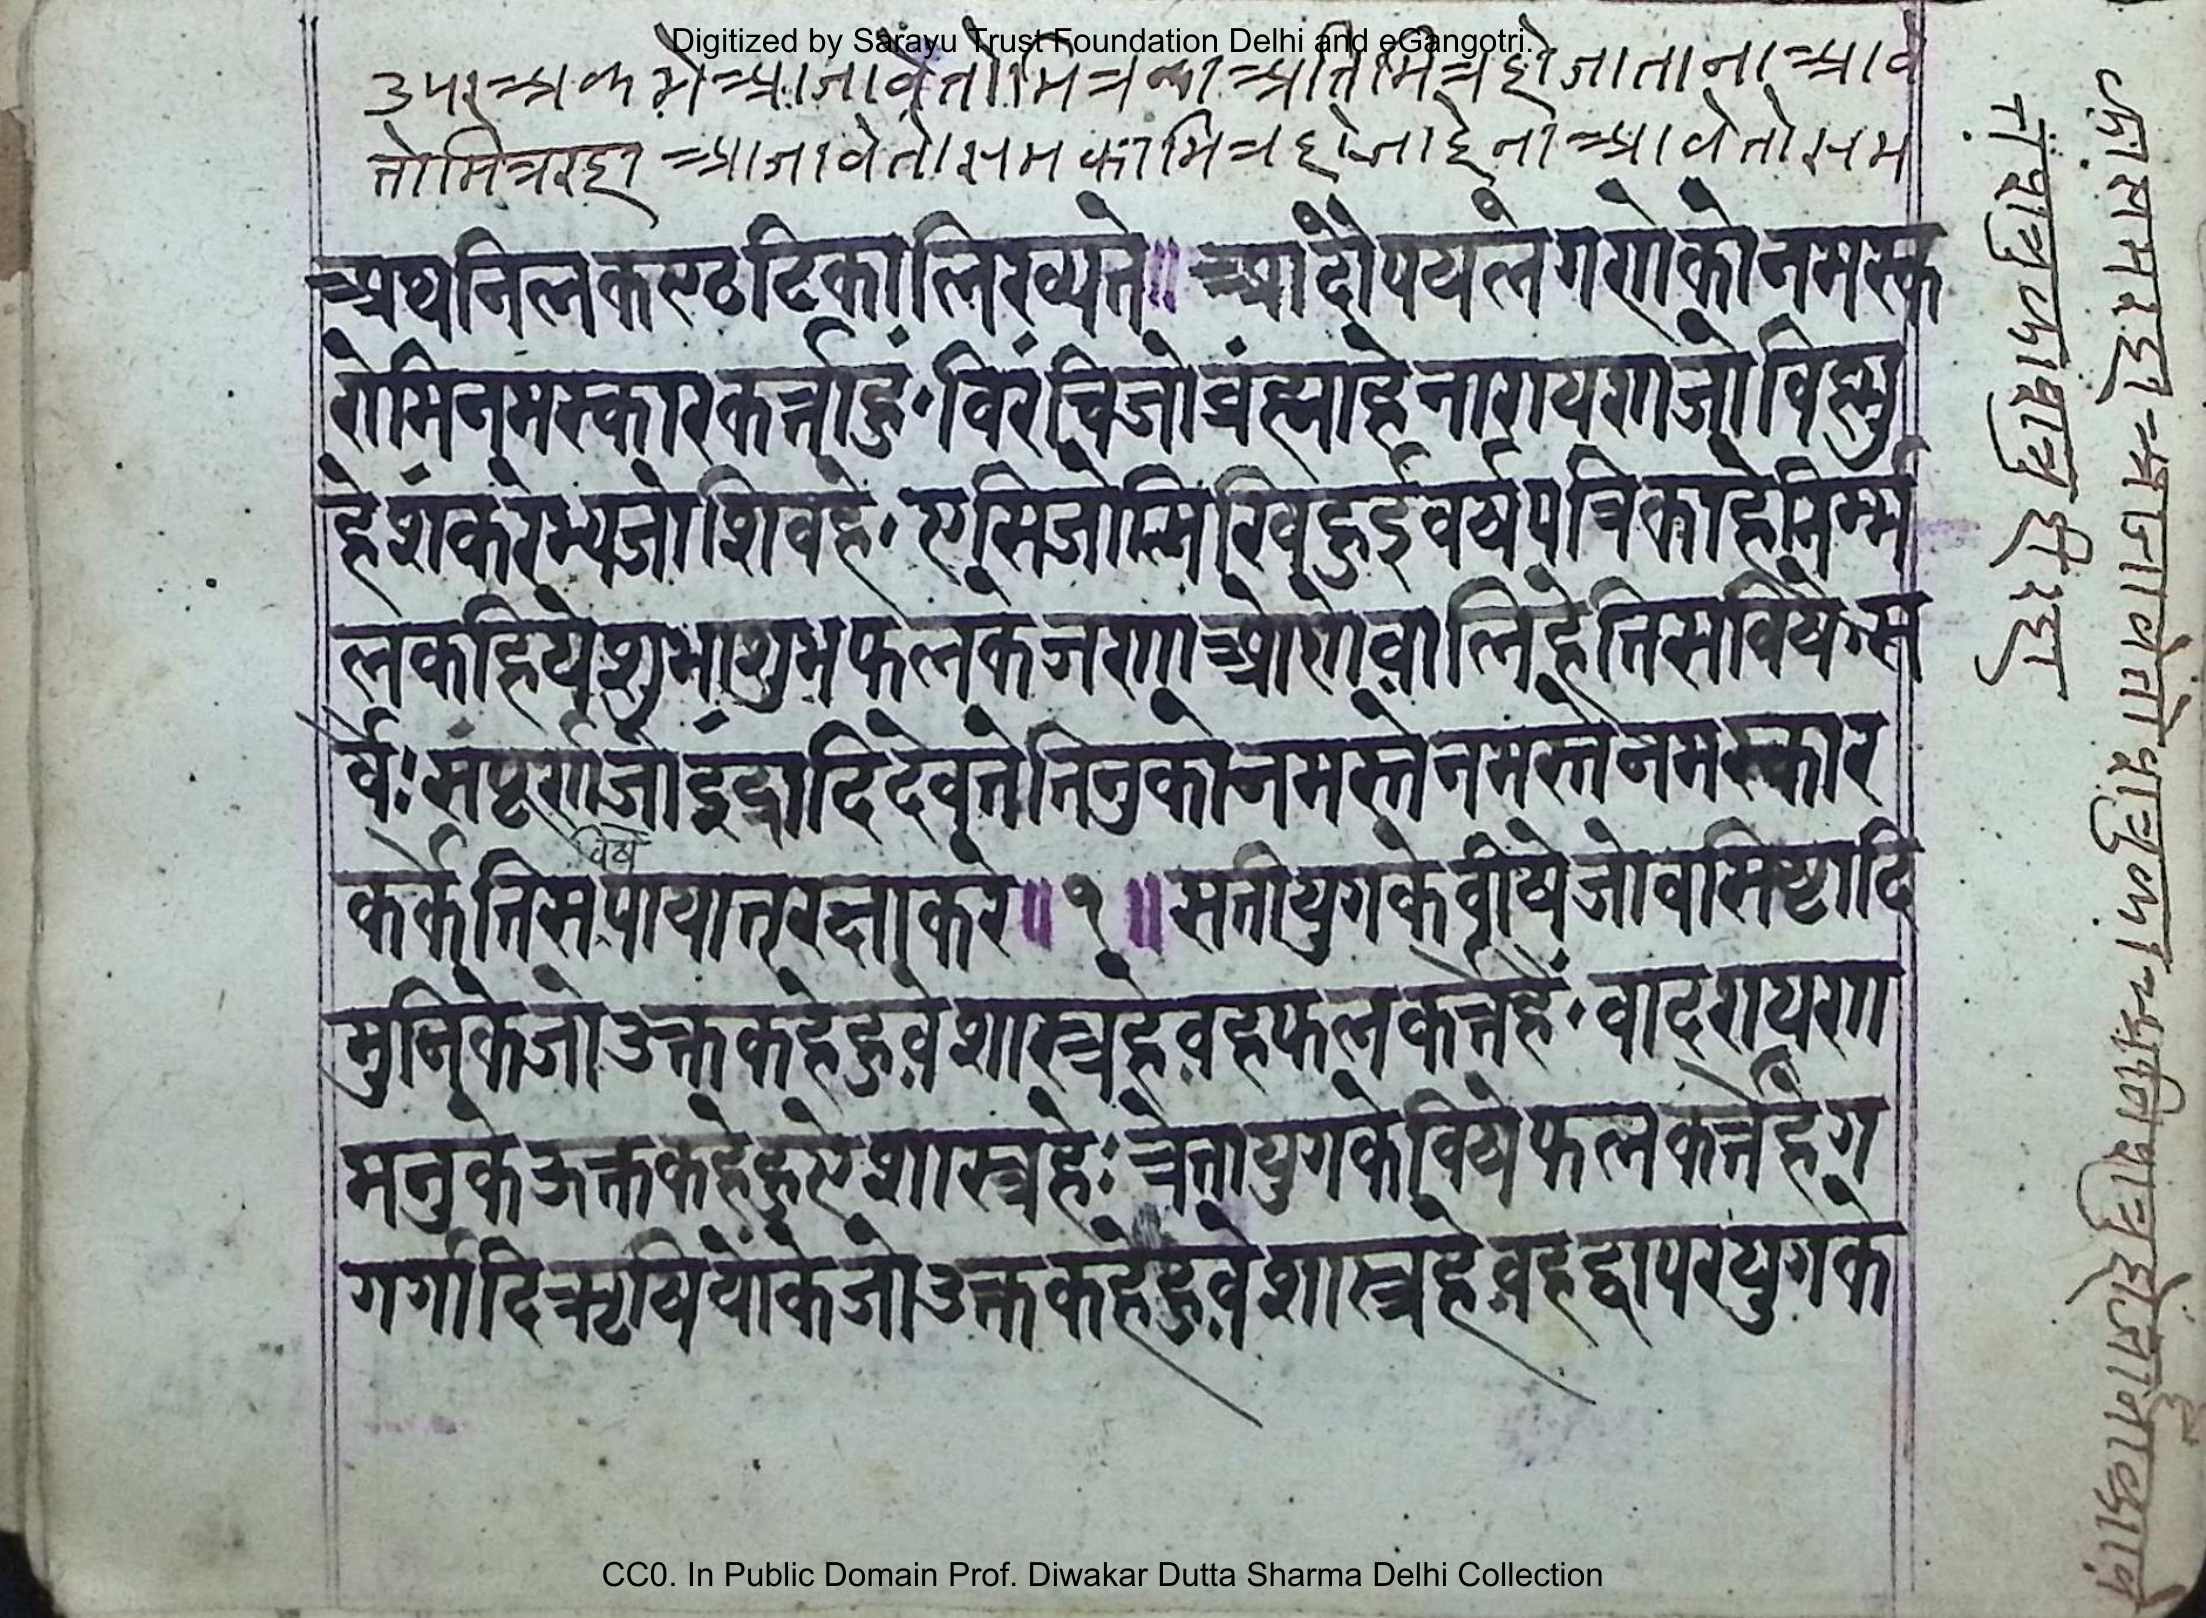 Digitized by Sarayu Trust Foundation Delhi and eGangotri.
उपर अंक मे आजावे तो मित्र का अति मित्र हो जाता ना आवे
तो मित्र रहा आजावे तो सम का मित्र हो जाहे ना आवे तो सम
अथनिलकण्ठटिकालिख्यते॥ आदौपयलेगणेकोनमस्क
रोमिनमस्कारकर्त्ताहुं॰विरंचिजोब्रंह्माहेनारायणजोविष्णु
हेशंकरेभ्यजोशिवहे॰एसिजोलिखिहुइवर्षपत्रिकाहेनिर्म्म
लकहियेशुभाशुभफलकेजरणाओणेवालिहेतिसविषे॰स
र्वेः संपूर्णजोइंद्रादिदेवतेतिनुकोनमस्तेनमस्तेनमस्कार
विषे
कर्केतिसपायातरक्षाकरे॥१॥सतीयुगकेवीषेजोवसिष्टादि
मुनिकेजोउक्तकहेहुवेशास्त्रहेवहफलकर्त्तेहैं॰वादरायण
मनुकेऊक्तकहेहुएशास्त्रहेः त्रेतायुगकेविषेफलकर्त्तेहैग
गर्गादिऋषियोंकेजोउक्तकहेहुवेशास्त्रहेवहद्वापरयुगके
का सम रहा अजावे तो शत्रु का अति शत्रु हो जाता है आवे
तो शत्रु का शत्रु ही रहा
CC0. In Public Domain Prof. Diwakar Dutta Sharma Delhi Collection